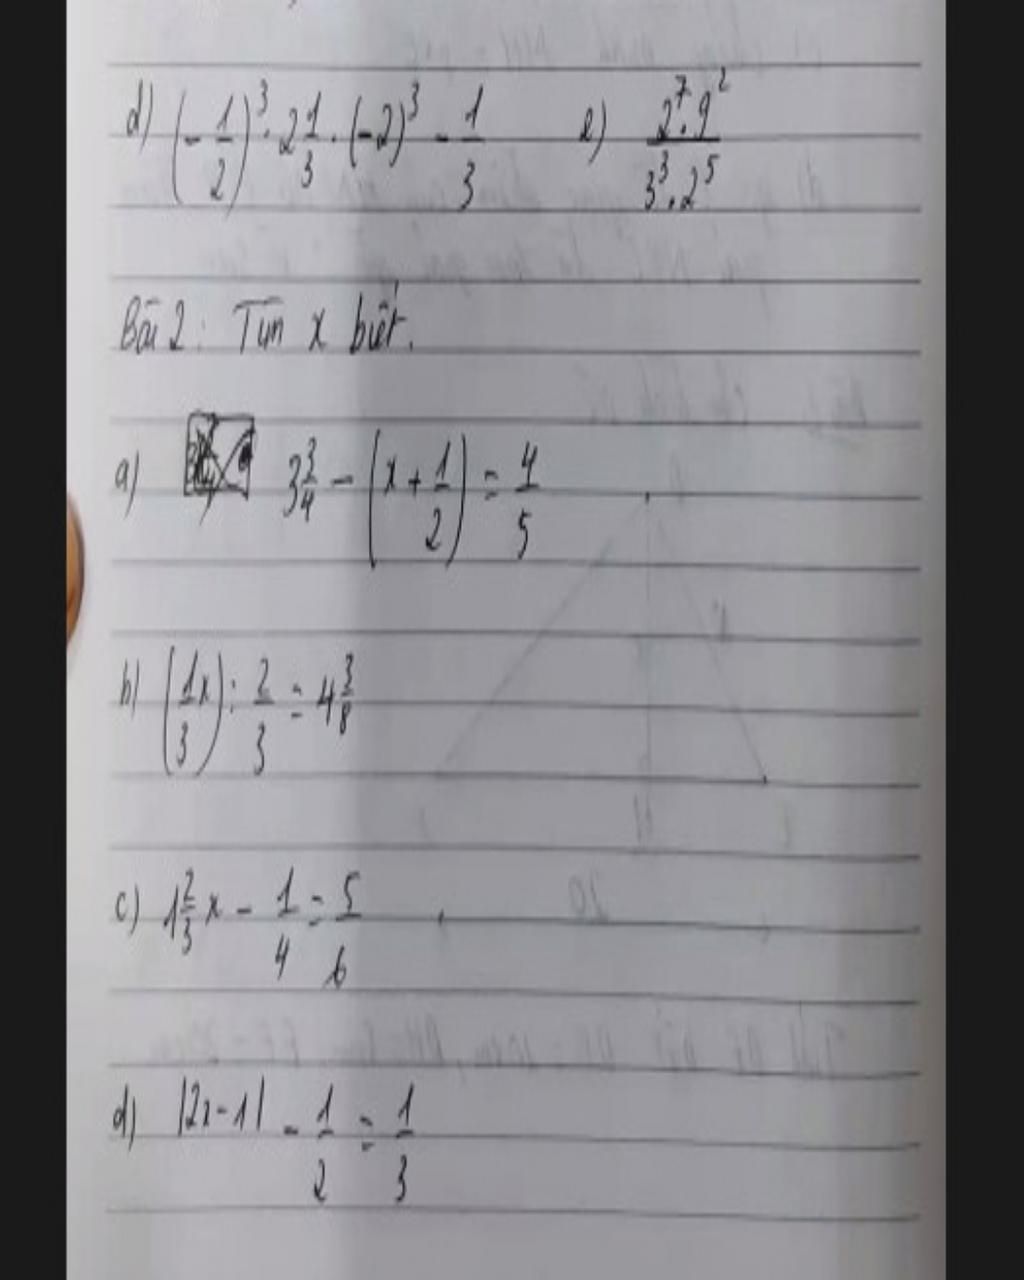 d) (-1/2)^3 . 2 1/3 . (-2)^3 - 1/3 e) 2^7 . 9^2 / 3^3 . 2^5
Bài 2: Tìm x biết.
a) 3 3/4 - (x + 1/2) = 4/5
b) (1/3 x) : 2/3 = 4 3/8
c) 1 2/3 x - 1/4 = 5/6
d) |2x - 1| - 1/2 = 1/3